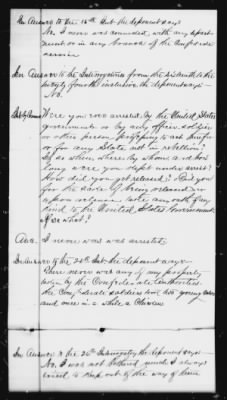 In Answer to the 15th Int the deponent says
No. I never was connected, with any depart
ment or in any branch of the Confederate
service
In Answer to the Interrogatories from the sixteenth to the
twenty fourth inclusive the deponent says
No.
Were you ever arrested by the United States
government or by any officer, soldier
or other person, professing to act therefor
or for any State not in rebellion?
If so when, where, by whom and how
long were you kept under arrest?
How did you get released? Did you
for the sake of being released or
upon release take any oath of any
kind to the United States Government
If so what?
Ans. I never was was arrested.
In Answer to the 26th Int. the deponent says
There never was any of my property
taken by the Confederate authorities.
the Confederate soldiers took two young
and once in a while a Chicken
In Answer to the Interrogatory the deponent says
No, I was not bothered much I always
tried to keep out of the way of them